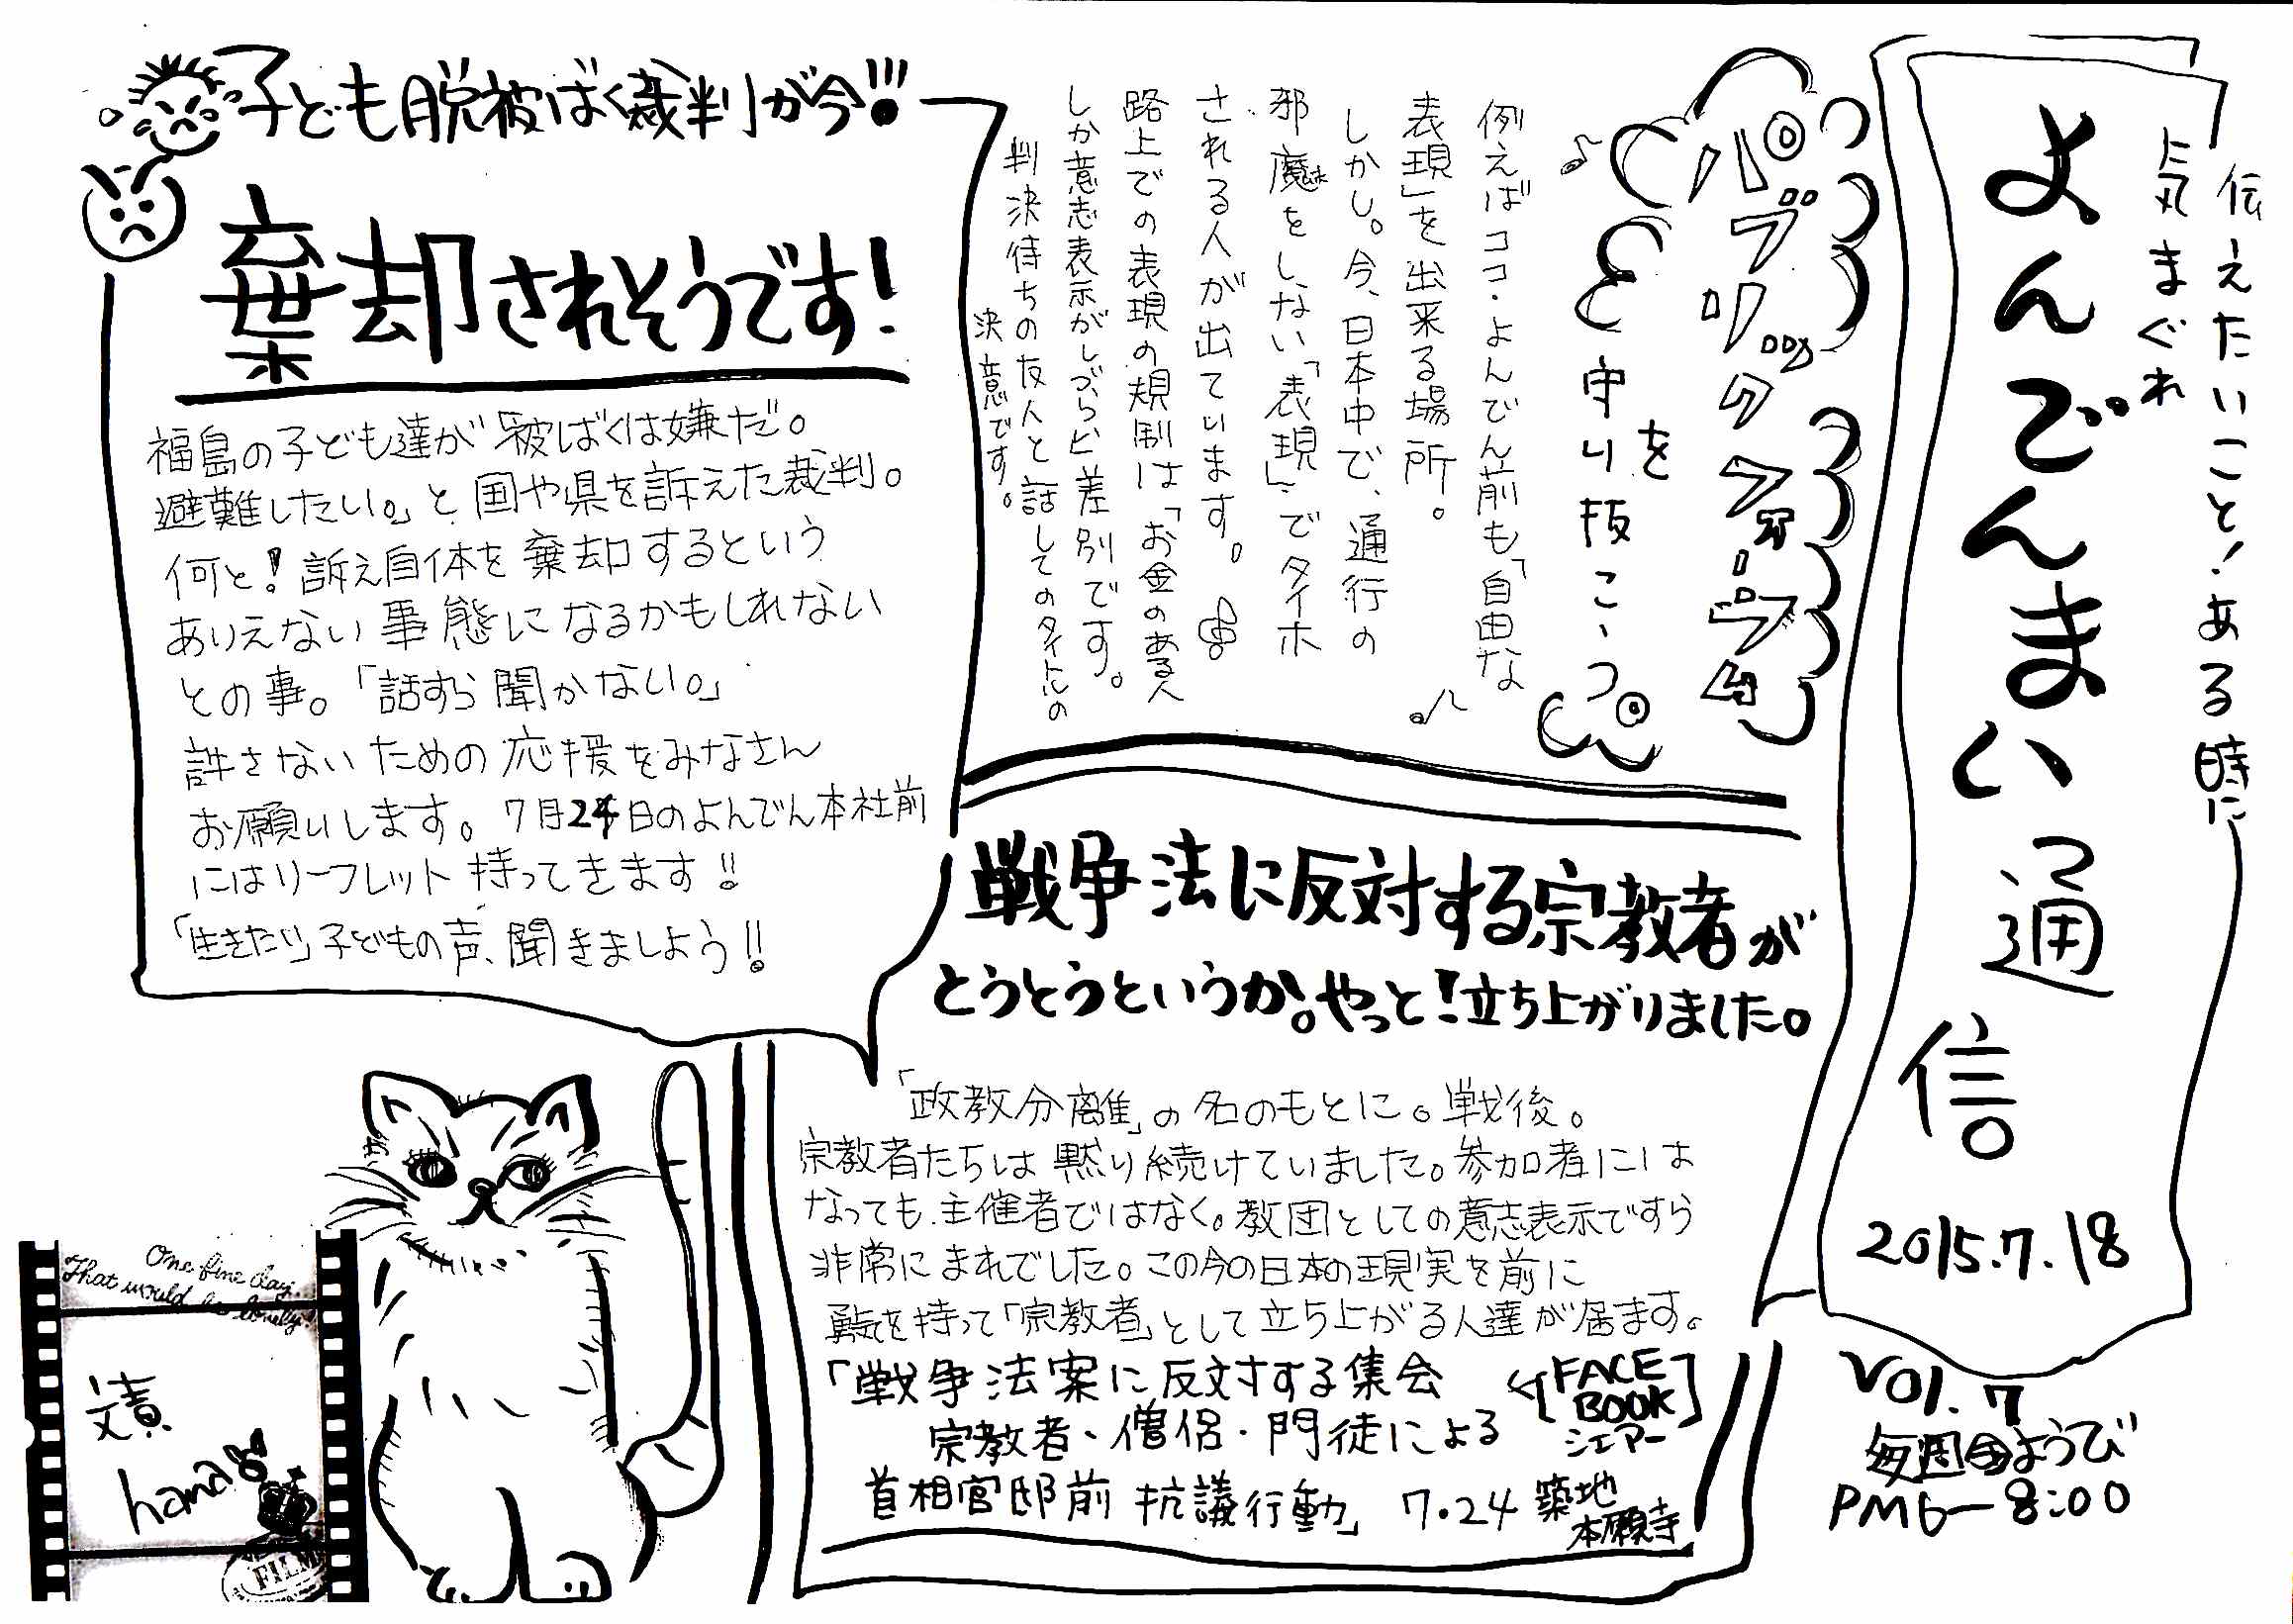 伝えたいこと！ある時に
気まぐれ
よんでんまい通信。
2015.7.18
VOl.7
毎週金ようび
PM6-8:00
パブリックフォーラム
を
守り抜こう
例えばココ・よんでん前も「自由な
表現」を出来る場所。
しかし。今、日本中で、通行の
邪魔をしない「表現」でタイホ
される人が出ています。
路上での表現の規制は「お金のある人
しか意志表示がしづらい差別です。
判決待ちの友人と話してのタイトルの
決意です。
子ども脱被ばく裁判が今!!!
棄却されそうです！
福島の子ども達が「被ばくは嫌だ。
避難したい。」と国や県を訴えた裁判。
何と！訴え自体を棄却するという
ありえない事態になるかもしれない
との事。「話すら聞かない。」
許さないための応援をみなさん
お願いします。7月24日のよんでん本社前
にはリーフレット持ってきます!!
「生きたい」子どもの声、聞きましょう!!
戦争法に反対する宗教者が
とうとうというか。やっと！立ち上がりました。
「政教分離」の名のもとに。戦後。
宗教者たちは黙り続けていました。参加者には
なっても、主催者ではなく。教団としての意志表示ですら
非常にまれでした。この今の日本の現実を前に
勇気を持って「宗教者」として立ち上がる人達が居ます。
「戦争法案に反対する集会
宗教者、僧侶・門徒による
首相官邸前 抗議行動」 7・24 築地
本願寺
<[FACE
BOOK]
シェアー
One fine day.
That would be lovely!
文責
hana
FILM